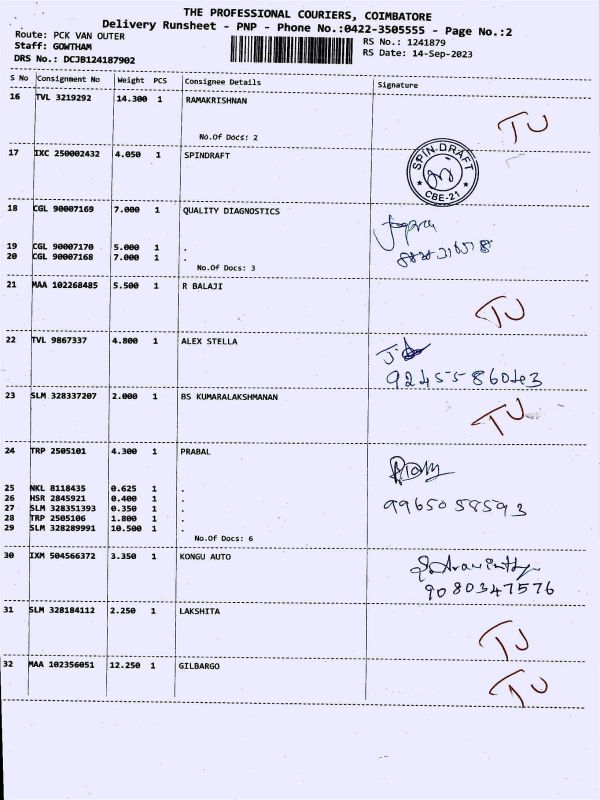 THE PROFESSIONAL COURIERS, COIMBATORE
Delivery Runsheet - PNP - Phone No.:0422-3505555 - Page No.:2
Route: PCK VAN OUTER
RS No.: 1241879
Staff: GOWTHAM
RS Date: 14-Sep-2023
DRS No.: DCJB124187902
S No Consignment No Weight PCS Consignee Details Signature
16 TVL 3219292 14.300 1 RAMAKRISHNAN
TU
No.Of Docs: 2
17 IXC 250002432 4.050 1 SPINDRAFT
SPIN-DRAFT
CBE-21
18 CGL 90007169 7.000 1 QUALITY DIAGNOSTICS
19 CGL 90007170 5.000 1 .
20 CGL 90007168 7.000 1 .
No.Of Docs: 3
21 MAA 102268485 5.500 1 R BALAJI
TU
22 TVL 9867337 4.800 1 ALEX STELLA
9245586043
23 SLM 328337207 2.000 1 BS KUMARALAKSHMANAN
TU
24 TRP 2505101 4.300 1 PRABAL
25 NKL 8118435 0.625 1 .
26 HSR 2845921 0.400 1 .
27 SLM 328351393 0.350 1 .
9965058593
28 TRP 2505106 1.800 1 .
29 SLM 328289991 10.500 1 .
No.Of Docs: 6
30 IXM 504566372 3.350 1 KONGU AUTO
9080347576
31 SLM 328184112 2.250 1 LAKSHITA
TU
32 MAA 102356051 12.250 1 GILBARGO
TU